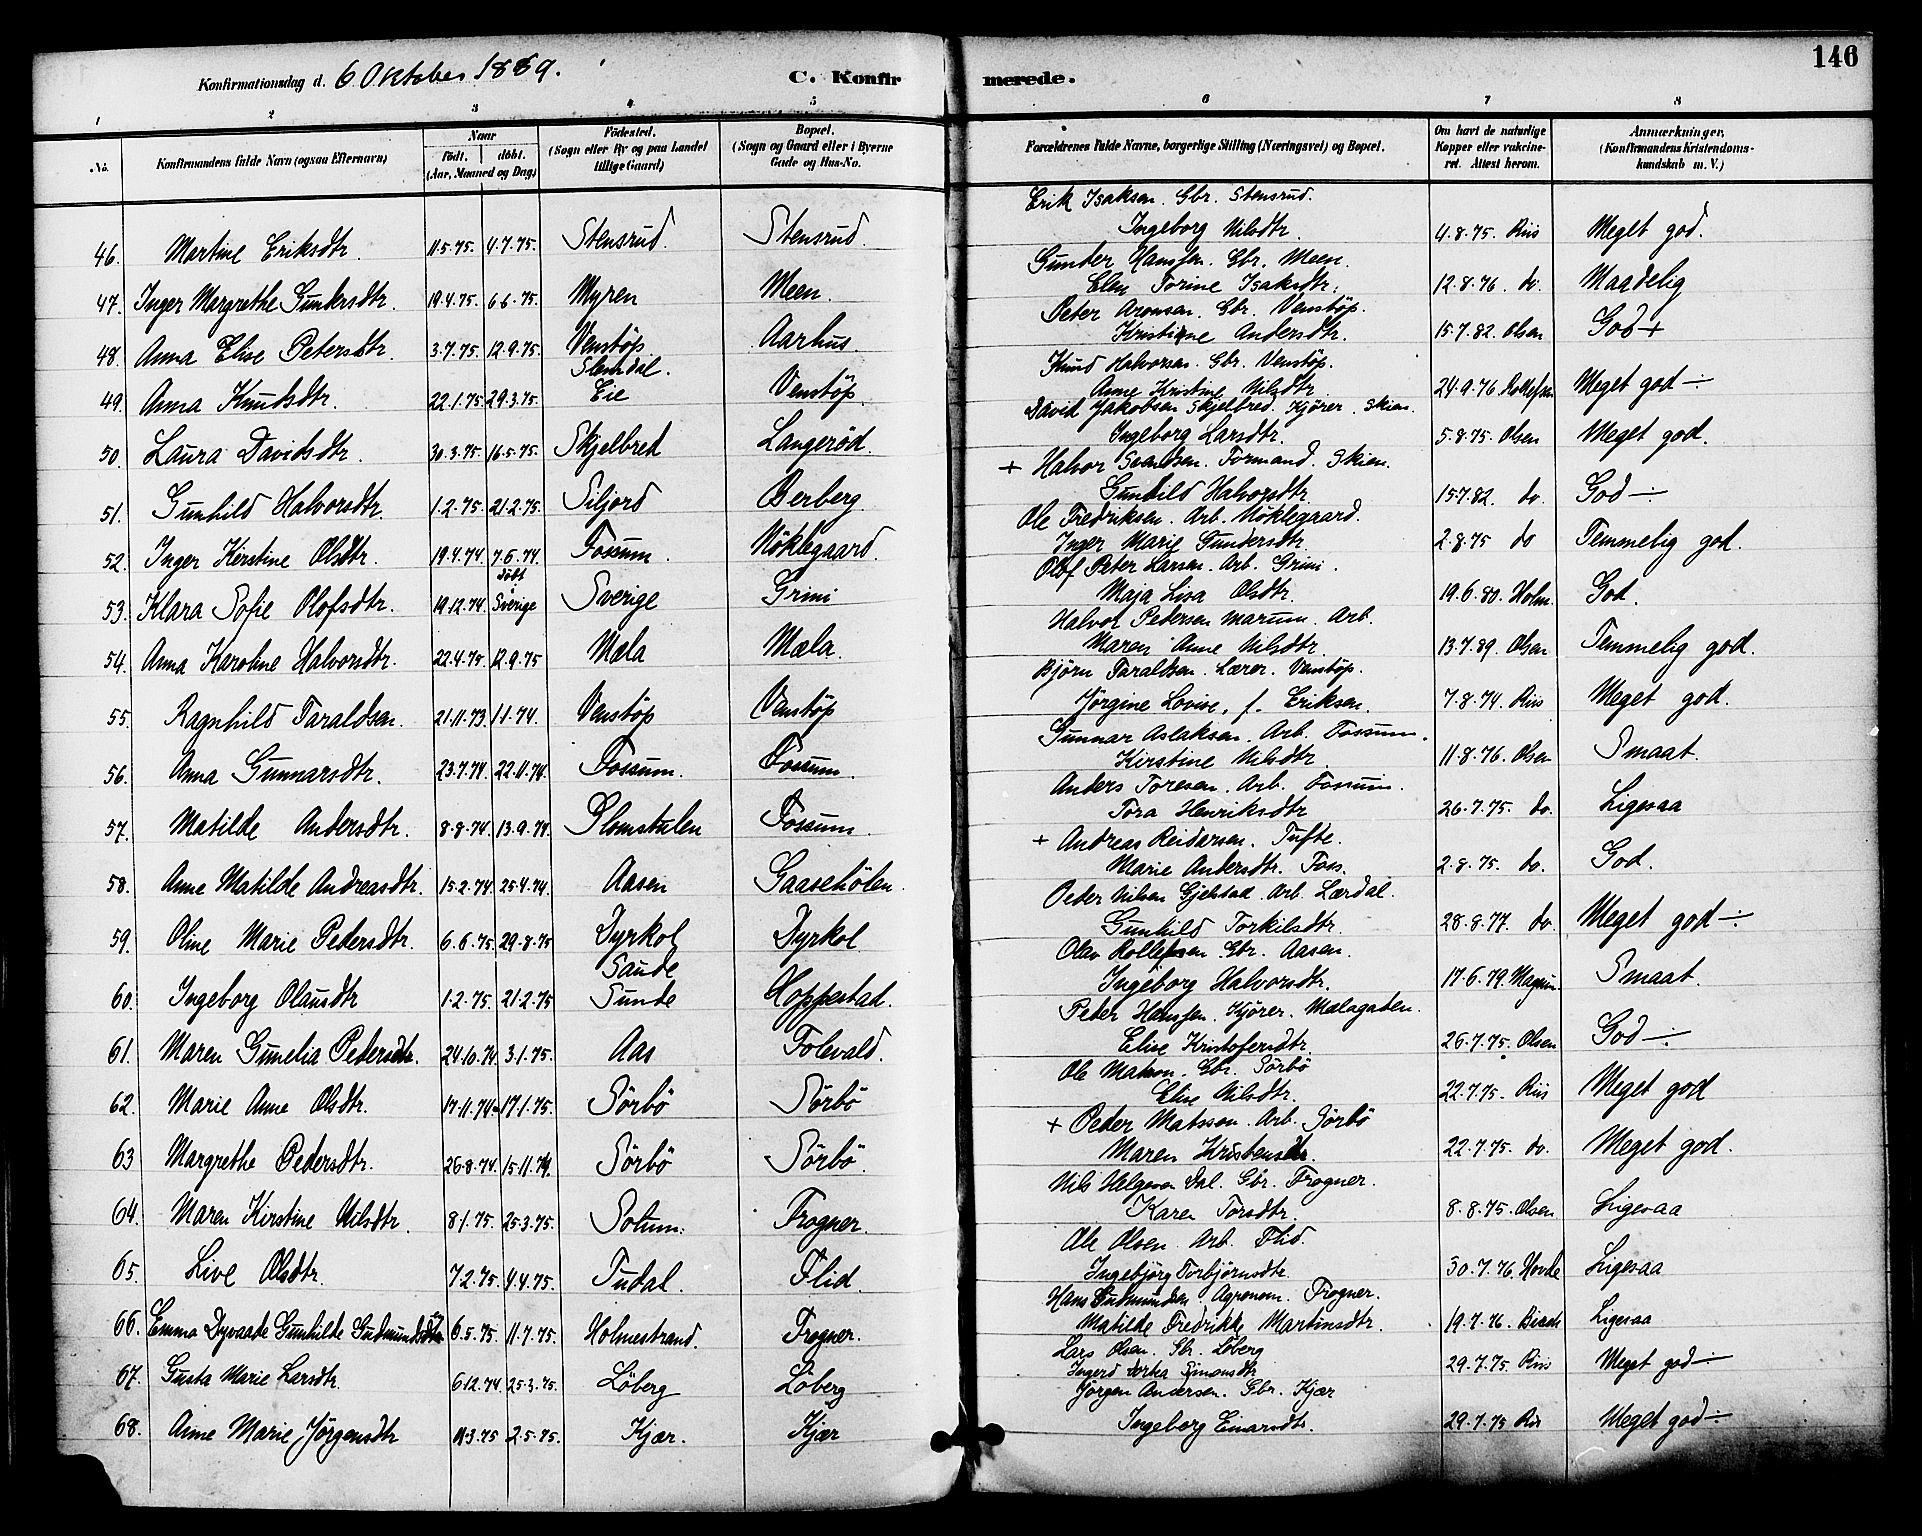 146
Konfirmationsdag d. 6 Oktober 1889. C. Konfirmerede.
1 2 3 4 5 6 7 8
No. Konfirmandens fulde Navn (ogsaa Efternavn) Naar Født. døbt. (Aar, Maaned og Dag) Fødested. (Sogn eller By og paa Landet tillige Gaard) Bopæl. (Sogn og Gaard eller i Byerne Gade og Hus-No. Forældrenes fulde Navne, borgerlige Stilling (Næringsvei) og Bopæl. Om havt de naturlige Kopper eller vakcineret. Attest herom. Anmærkninger, (Konfirmandens Kristendomskundskab m. V.)
Erik Isaksen. Gbr. Stensrud.
46. Martine Eriksdtr. 11.5.75. 4.7.75. Stensrud. Stensrud. Ingeborg Nilsdtr. 4.8.75. Riis Meget god.
Gunder Hanssen. Gbr. Meen.
47. Inger Margrethe Gundersdtr. 19.4.75. 6.6.75. Myren Meen. Elen Torine Isaksdtr. 12.8.76. do. Maadelig
Peter Aronsen. Gbr. Venstøp.
48. Anna Elise Petersdtr. 3.7.75. 12.9.75. Venstøp Aarhus Kristiane Andersdtr. 15.7.82. Olsen God +
Slemdal. Knud Halvorsen. Gbr. Venstøp.
49. Anna Knudsdtr. 22.1.75. 29.3.75. Eie Venstøp. Anne Kristine Nilsdtr. 24.9.76 Rollefsen Meget god ÷
David Jakobsen Skjelbred. Kjører. Skien.
50. Laura Davidsdtr. 30.3.75. 16.5.75. Skjelbred Langerød. Ingeborg Larsdtr. 5.8.75. Olsen Meget god.
+ Halvor Saandsen. Formand. Skien.
51. Gunhild Halvorsdtr. 1.2.75. 21.2.75. Siljord Berberg. Gunhild Halvorsdtr. 15.7.82. do. God ÷
Ole Fredriksen. Arb. Nøklegaard.
52. Inger Kirstine Olsdtr. 19.4.74. 7.6.74. Fossum. Nøklegaard. Inger Marie Gundersdtr. 2.8.75 do Temmelig god.
døbt Olof Peter Larsen. Arb. Grini.
53. Klara Sofie Olofsdtr. 19.12.74. Sverige Sverige Grini Maja Lisa Olsdtr. 19.6.80. Holm. God.
Halvor Pedersen Marum. Arb.
54. Anna Karoline Halvorsdtr. 22.4.75. 12.9.75 Mæla Mæla. Maren Anne Nilsdtr. 13.7.89. Olsen Temmelig god.
Bjørn Taraldsen. Lærer. Venstøp.
55. Ragnhild Taraldsen. 21.11.73. 1.1.74. Venstøp Venstøp Jørgine Lovise, f. Eriksen. 7.8.74. Riis Meget god.
Gunnar Aslaksen. Arb. Fossum.
56. Anna Gunnarsdtr. 23.7.74. 22.11.74. Fossum. Fossum. Kirstine Nilsdtr. 11.8.76. Olsen Smaat.
Anders Toresen. Arb. Fossum.
57. Matilde Andersdtr. 8.8.74. 13.9.74. Plomstulen Fossum. Tora Henriksdtr 26.7.75. do. Ligesaa
+ Andreas Reidarsen. Tufte.
58. Anne Matilde Andreasdtr. 15.2.74. 25.4.74. Aasen Gaasehølen. Marie Andersdtr. Foss. 2.8.75. do. God.
Peder Nilsen Gjelstad. Arb. Lærdal.
59. Oline Marie Pedersdtr. 6.6.75. 29.8.75 Dyrkol Dyrkol Gunhild Torkilsdtr. 28.8.77. do. Meget god ÷
Saude Olav Rollefsen. Gbr. Aasen.
60. Ingeborg Olausdtr 1.2.75. 21.2.75 Sunde Hoppestad. Ingeborg Halvorsdtr. 17.6.79. Magnus. Smaat.
Peter Hanssen. Kjører. Mælagaten.
61. Maren Gunelia Pedersdtr. 24.10.74. 3.1.75. Aas Folevald. Elise Kristofersdtr 26.7.75. Olsen God ÷
Ole Matson. Gbr. Sørbø
62. Marie Anne Olsdtr. 17.11.74. 17.1.75. Sørbø Sørbø Elise Nilsdtr. 22.7.75. Riis Meget god
+ Peder Matsson. Arb. Sørbø
63 Margrethe Pedersdtr. 26.8.74. 15.11.74. Sørbø Sørbø. Maren Kristensdtr. 22.7.75. do. Meget god.
Nils Helgeson Dal. Gbr. Frogner.
64. Maren Kirstine Nilsdtr. 8.1.75. 25.3.75. Solum. Frogner. Karen Torsdtr. 8.8.75. Olsen Ligesaa
Ole Olsen. Arb. Flid.
65. Live Olsdtr. 7.2.75. 4.4.75. Tudal. Flid. Ingebjørg Torbjørnsdtr. 30.7.76. Hovde Ligesaa
Hans Gudmundsen. Agronom. Frogner.
66. Emma Dyvaade Gunhilde Gudmundsdtr 6.5.75 11.7.75. Holmestrand. Frogner. Matilde Fredrikke Martinsdtr. 19.7.76. Ligesaa
Lars Olsen. Gbr. Løberg
67. Gusta Marie Larsdtr. 6.12.74 25.3.75. Løberg Løberg Ingerd Dortea Simonsdtr 29.7.75. Riis Meget god ÷
Jørgen Andersen. Gbr. Kjær
68. Anne Marie Jørgensdtr 11.3.75 2.5.75. Kjær. Kjær Ingeborg Einarsdtr. 29.7.75 Riis Meget god ÷